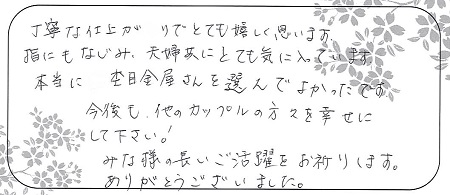 丁寧な仕上がりでとても嬉しく思います。
指にもなじみ、夫婦共にとても気に入っています。
本当に 杢目金屋さんを選んでよかったです。
今後も、他のカップルの方々を幸せに
して下さい!
みな様の長いご活躍をお祈りします。
ありがとうございました。